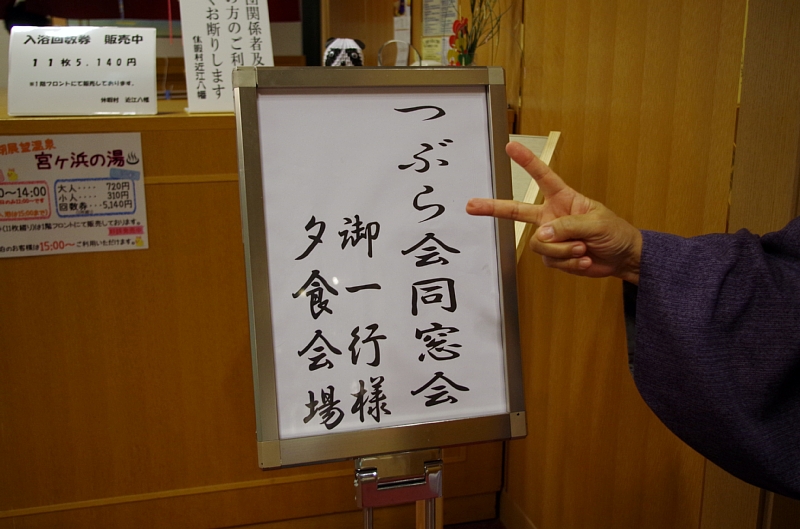 入浴回数券 販売中
11枚5,140円
*1階フロントにて販売しております。
休暇村 近江八幡
団関係者及
の方のご利
くお断りします
休暇村近江八幡
展望温泉
宮ヶ浜の湯♨
0～14:00
大人････ 720円
小人････ 310円
回数券･･5,140円
15:00～ご利用いただけます。
つぶら会同窓会
御一行様
夕食会場